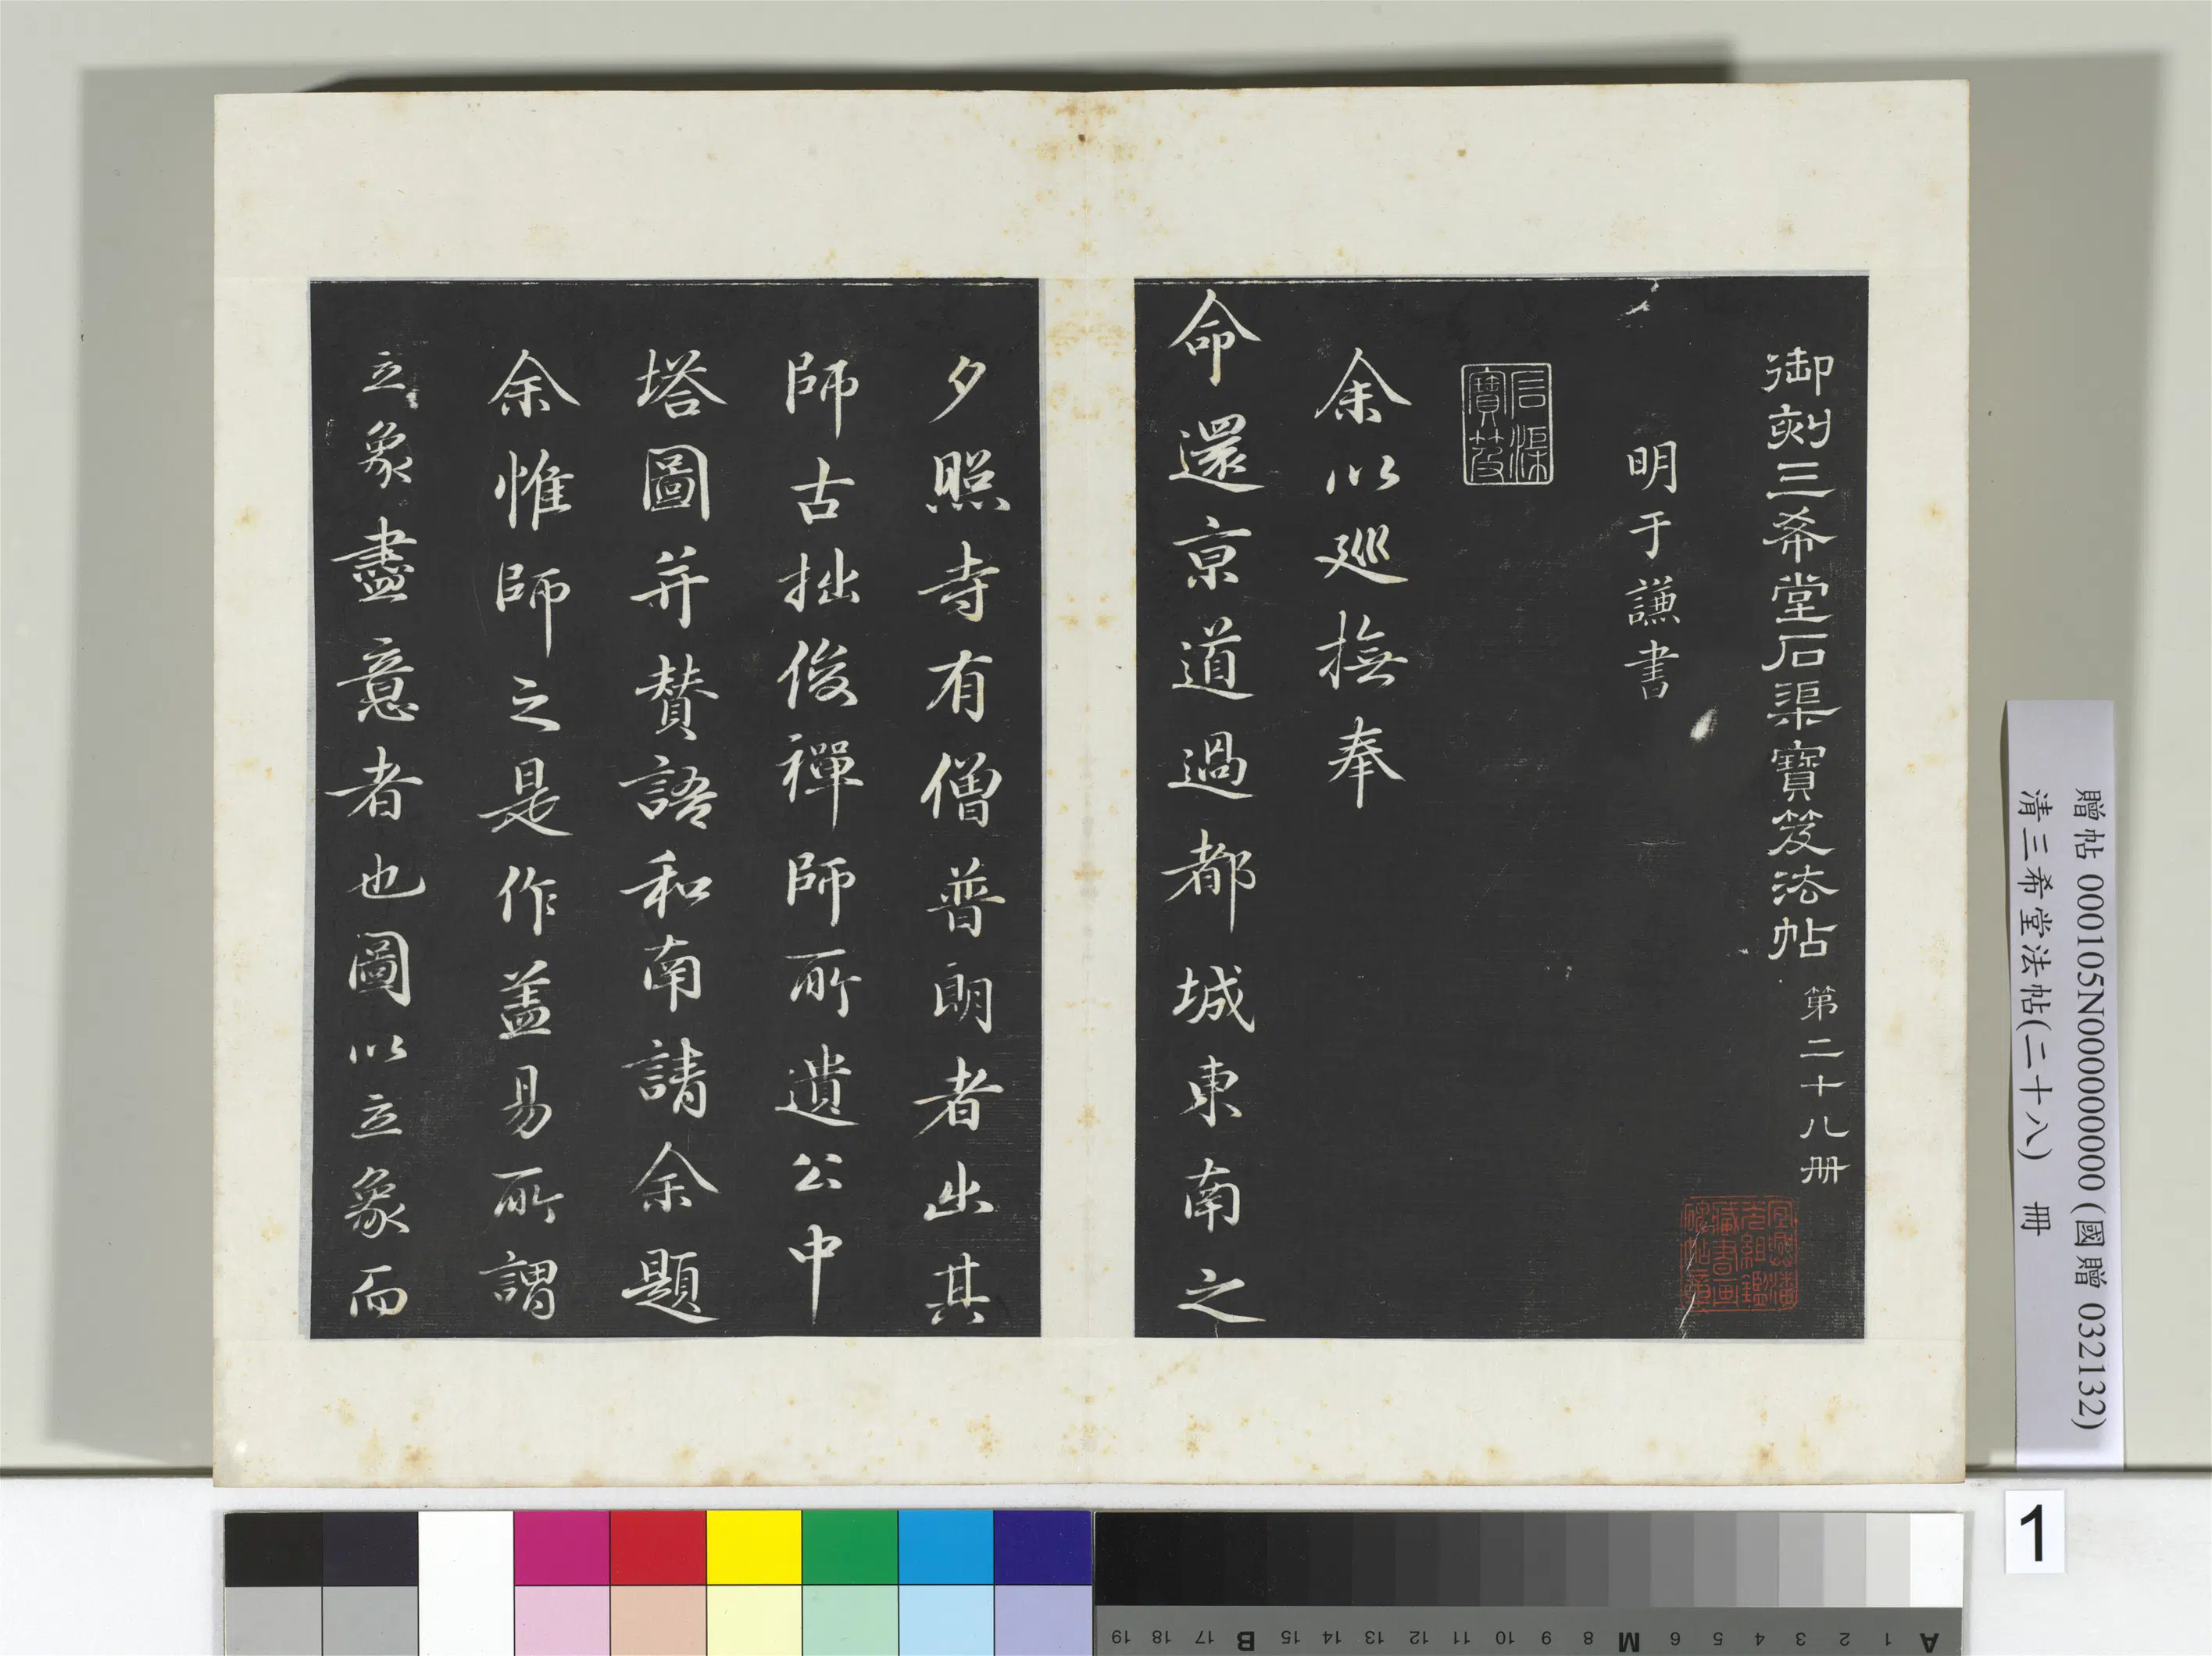 御刻三希堂石渠寶笈法帖 第二十八冊
明于謙書
石渠寶笈
余以巡撫奉
命還京道過都城東南之
夕照寺有僧普朗者出其
師古拙俊禪師所遺公中
塔圖并贊語和南請余題
余惟師之是作葢易所謂
立象盡意者也圖以立象而
贈帖 000105N000000000 (國贈 032132)
清三希堂法帖(二十八) 冊
1
A 1 2 3 4 5 6 M 8 9 10 11 12 13 14 15 B 17 18 19